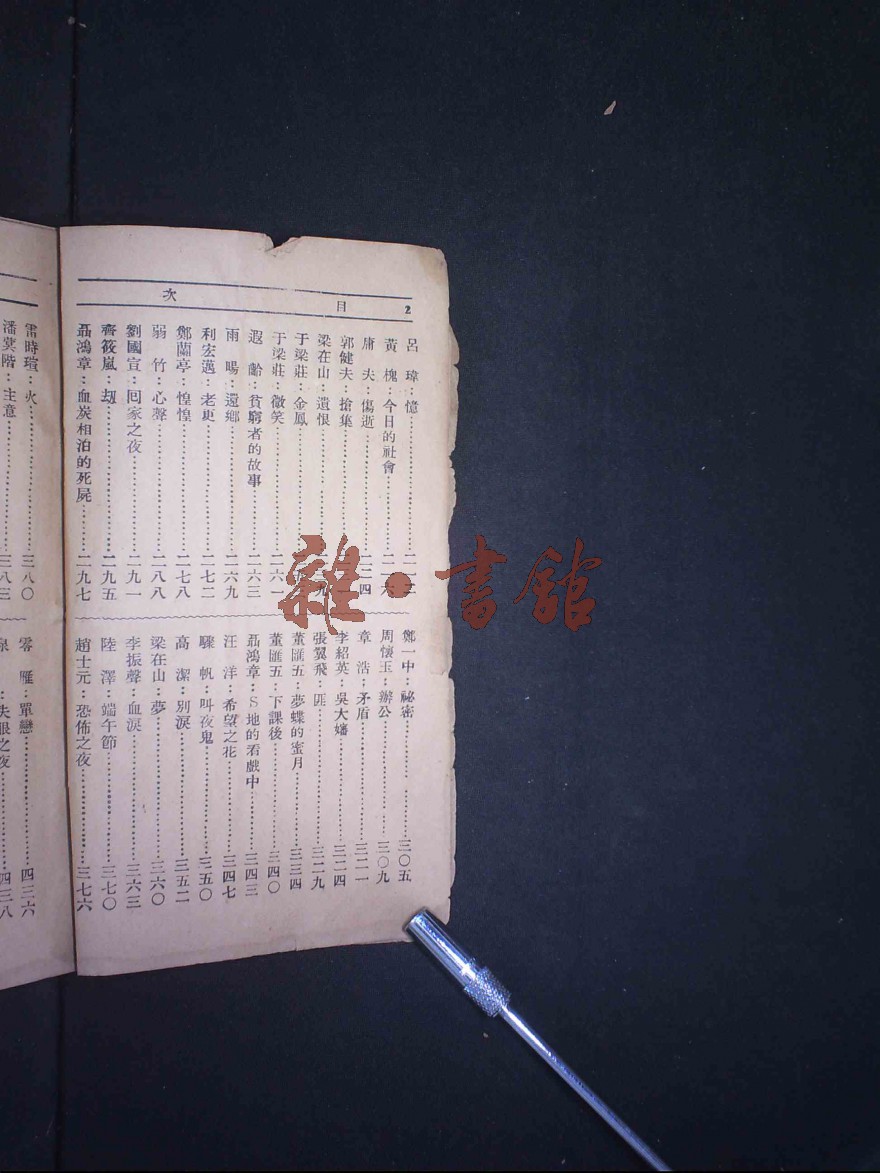 目 次 2
呂 瑋：憶
黃 槐：今日的社會
庸 夫：傷逝
郭健夫：搶集
梁在山：遺恨
于梁莊：金鳳
于梁莊：微笑……二六一
遐 齡：貧窮者的故事……二六三
雨 暘：還鄉……二六九
利宏邁：老更……二七二
鄭蘭亭：惶惶……二七八
弱 竹：心聲……二八八
劉國宣：回家之夜……二九一
齊筱嵐：劫……二九五
聶鴻章：血炭相泊的死屍……二九七
鄭一中：祕密……三〇五
周懷玉：辦公……三〇九
章 浩：矛盾……三二一
李紹英：吳大嬸……三二四
張翼飛：匪……三二九
董匯五：夢蝶的蜜月……三三四
董匯五：下課後……三四〇
聶鴻章：S地的看戲中……三四三
汪 洋：希望之花……三四七
驟 帆：叫夜鬼……三五〇
高 潔：別淚……三五二
梁在山：夢……三六〇
李振聲：血淚……三六三
陸 澤：端午節……三七〇
趙士元：恐佈之夜……三七六
雷時瑄：火……三八〇
潘蓂階：主意……三八三
零 雁：單戀……四三六
失眠之夜……四三八
雜·書館